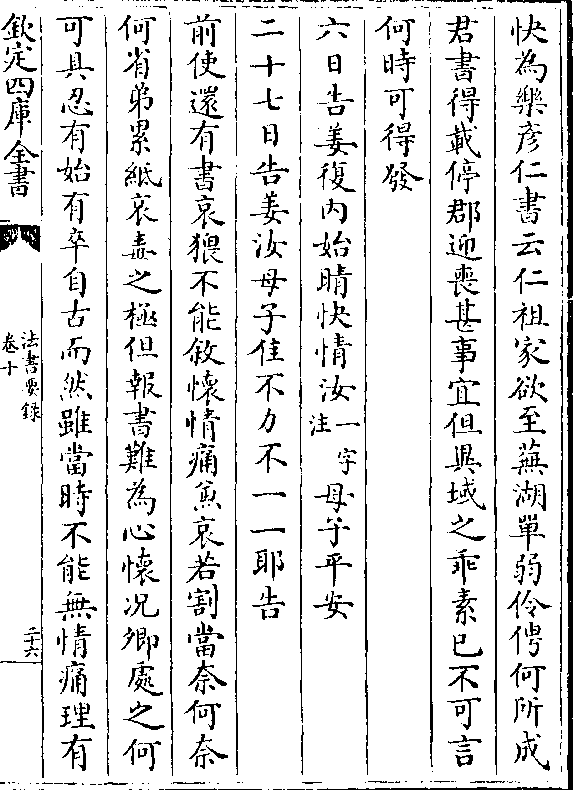 快為樂彦仁書云仁祖家欲至蕪湖單弱伶俜何所成
君書得載停郡迎喪甚事宜但異域之乖素已不可言
何時可得發
六日告姜復内始晴快情汝一字注母子平安
二十七日告姜汝母子佳不力不一一耶告
前使還有書哀猥不能敘懷情痛兼哀若割當奈何奈
何省弟累紙哀毒之極但報書難為心懷况卿處之何
可具忍有始有卒自古而然雖當時不能無情痛理有
欽定四庫全書
法書要錄
卷十
二十六